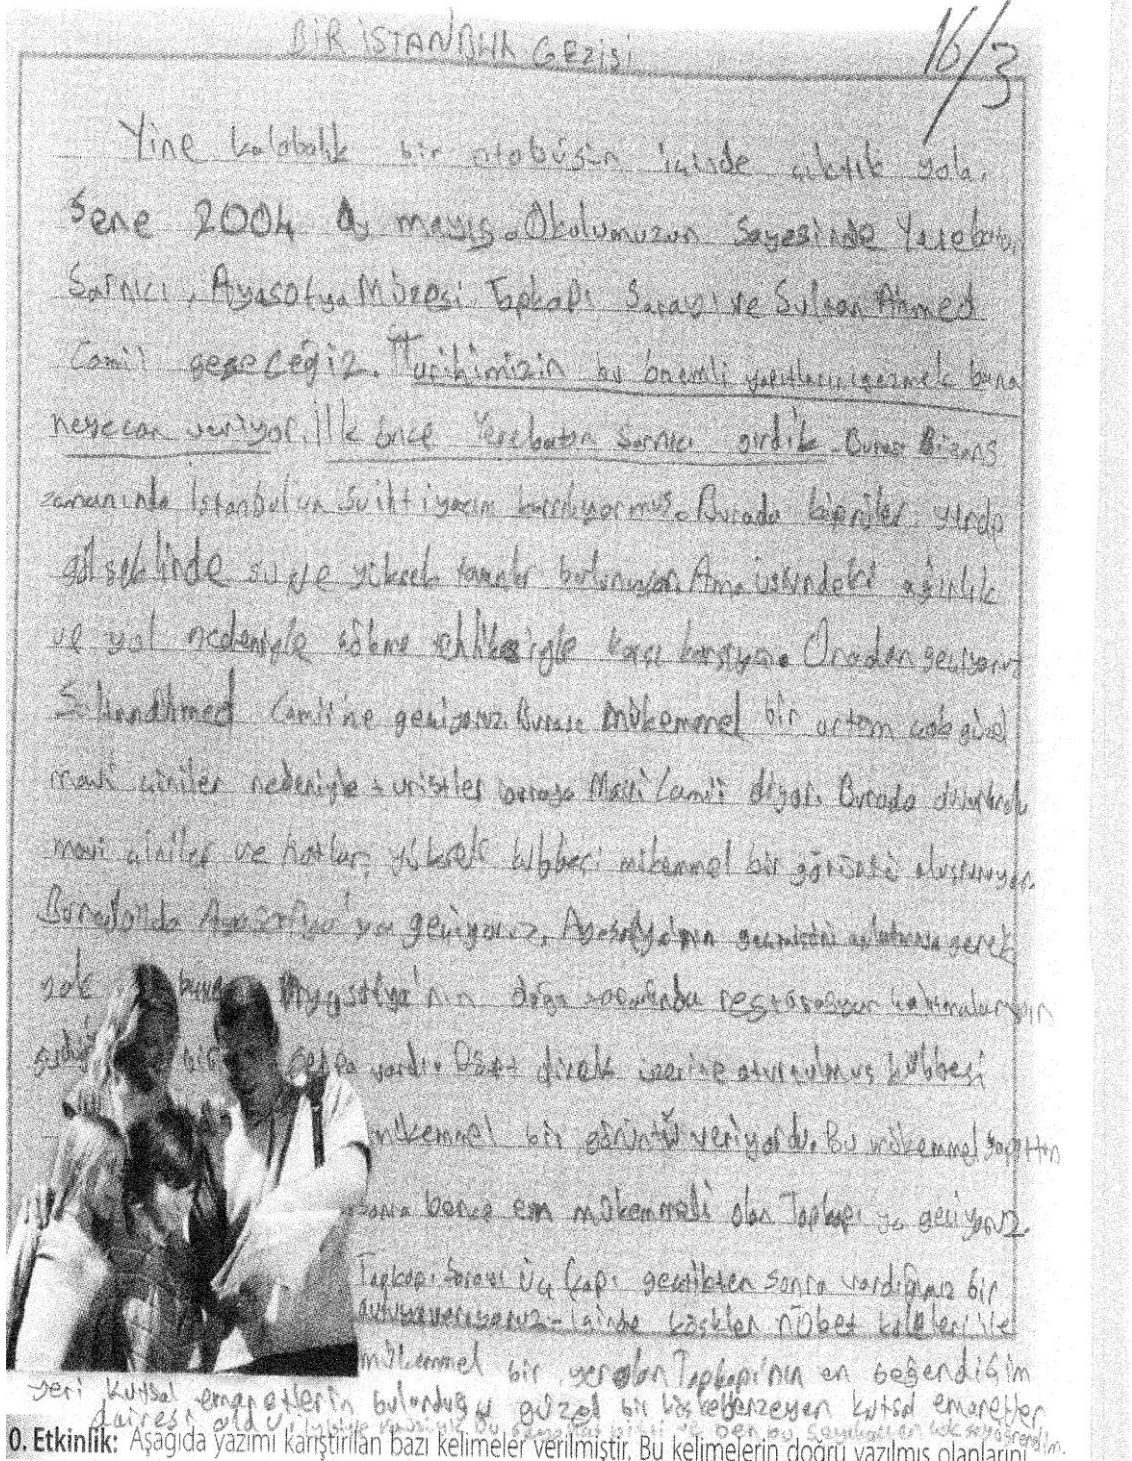 BİR İSTANBUL GEZİSİ
16/3
Yine kalabalık bir otobüsün içinde çıktık yola.
Sene 2004 Ay mayıs. Okulumuzun sayesinde Yerebatan
Sarnıcı, Ayasofya Müzesi Topkapı Sarayı ve Sultan Ahmed
Camii gezeceğiz. Tarihimizin bu önemli yapıtlarını gezmek bana
heyecan veriyor. İlk önce Yerebatan Sarnıcı girdik. Burası Bizans
zamanında İstanbul'un su ihtiyacını karşılıyormuş. Burada köprüler yerde
göl şeklinde su ve yüksek bulunuyor. Ama üstündeki ağırlık
ve yol nedeniyle çökme tehlikesiyle karşı karşıya. Oradan geçiyoruz
SultanAhmed Camii'ne geçiyoruz. Burası mükemmel bir ortam çok güzel
mavi çiniler nedeniyle turistler buraya Mavi Camii diyor. Burada
mavi çiniler ve hatlar, yüksek kubbesi mükemmel bir görüntü oluşturuyor.
Buradanda Ayasofya'ya geçiyoruz, Ayasofya'nın geçmişini anlatmama gerek
yok Ayasofya'nın restorasyon
bir vardı. Dört direk üzerine oturtulmuş kubbesi
mükemmel bir görüntü veriyordu. Bu mükemmel yapıttan
sonra bence em mükemmeli olan Topkapı ya geçiyoruz.
Topkapı Sarayı üç kapı geçtikten sonra vardığımız bir
avluya varıyoruz. İçinde köşkler nöbet kuleleri ile
mükemmel bir yer olan Topkapı'nın en beğendiğim
yeri kutsal emanetlerin bulunduğu güzel bir köşke benzeyen kutsal emanetler
dairesi oldu
0. Etkinlik: Aşağıda yazımı karıştırılan bazı kelimeler verilmiştir. Bu kelimelerin doğru yazılmış olanlarını